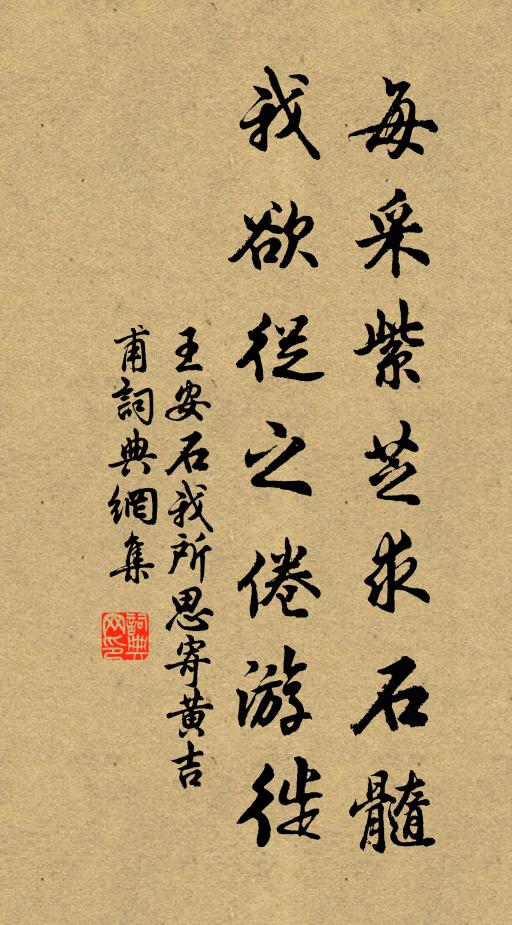 每采紫芝求石髓
我欲從之倦游徙
王安石我所思寄黄吉
甫詞典網集
詞典
网印